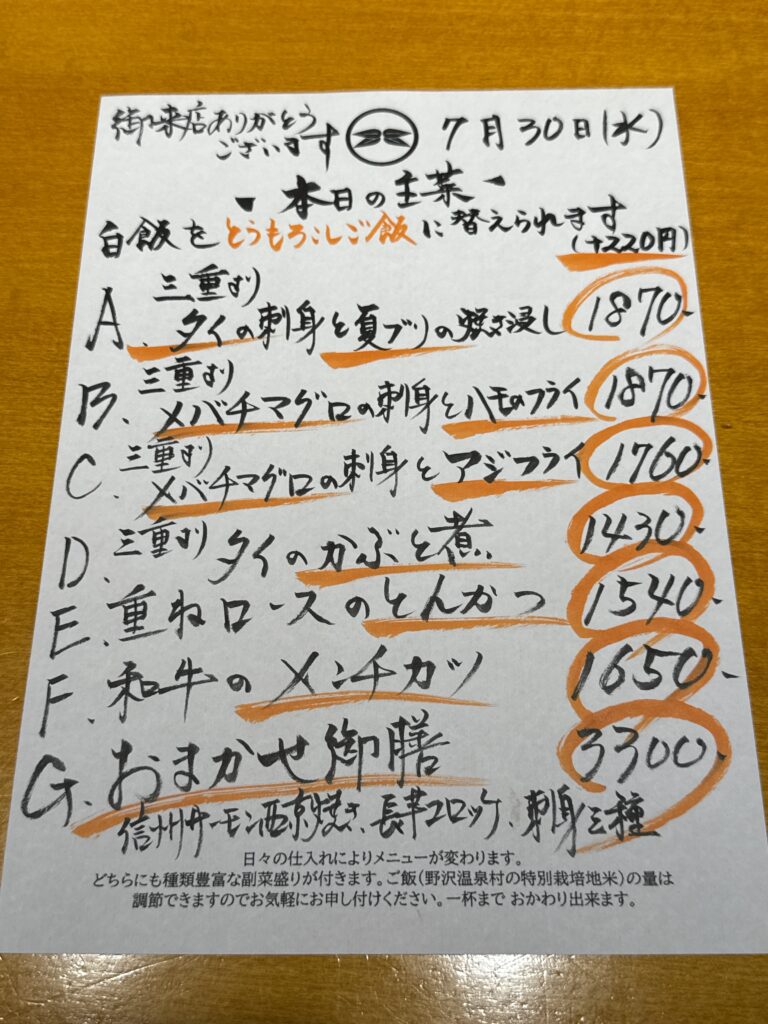 御来店ありがとう
ございます
7月30日(水)
本日の主菜
白飯をとうもろこしご飯に替えられます
(+220円)
A. 三重より
タイの刺身と夏ブリの焼き浸し 1870-
B. 三重より
メバチマグロの刺身とハモのフライ 1870-
C. 三重より
メバチマグロの刺身とアジフライ 1760-
D. 三重より タイのかぶと煮 1430-
E. 重ねロースのとんかつ 1540-
F. 和牛のメンチカツ 1650-
G. おまかせ御膳 3300-
信州サーモン西京焼き、長芋コロッケ、刺身三種
日々の仕入れによりメニューが変わります。
どちらにも種類豊富な副菜盛りが付きます。ご飯(野沢温泉村の特別栽培地米)の量は
調節できますのでお気軽にお申し付けください。一杯まで おかわり出来ます。